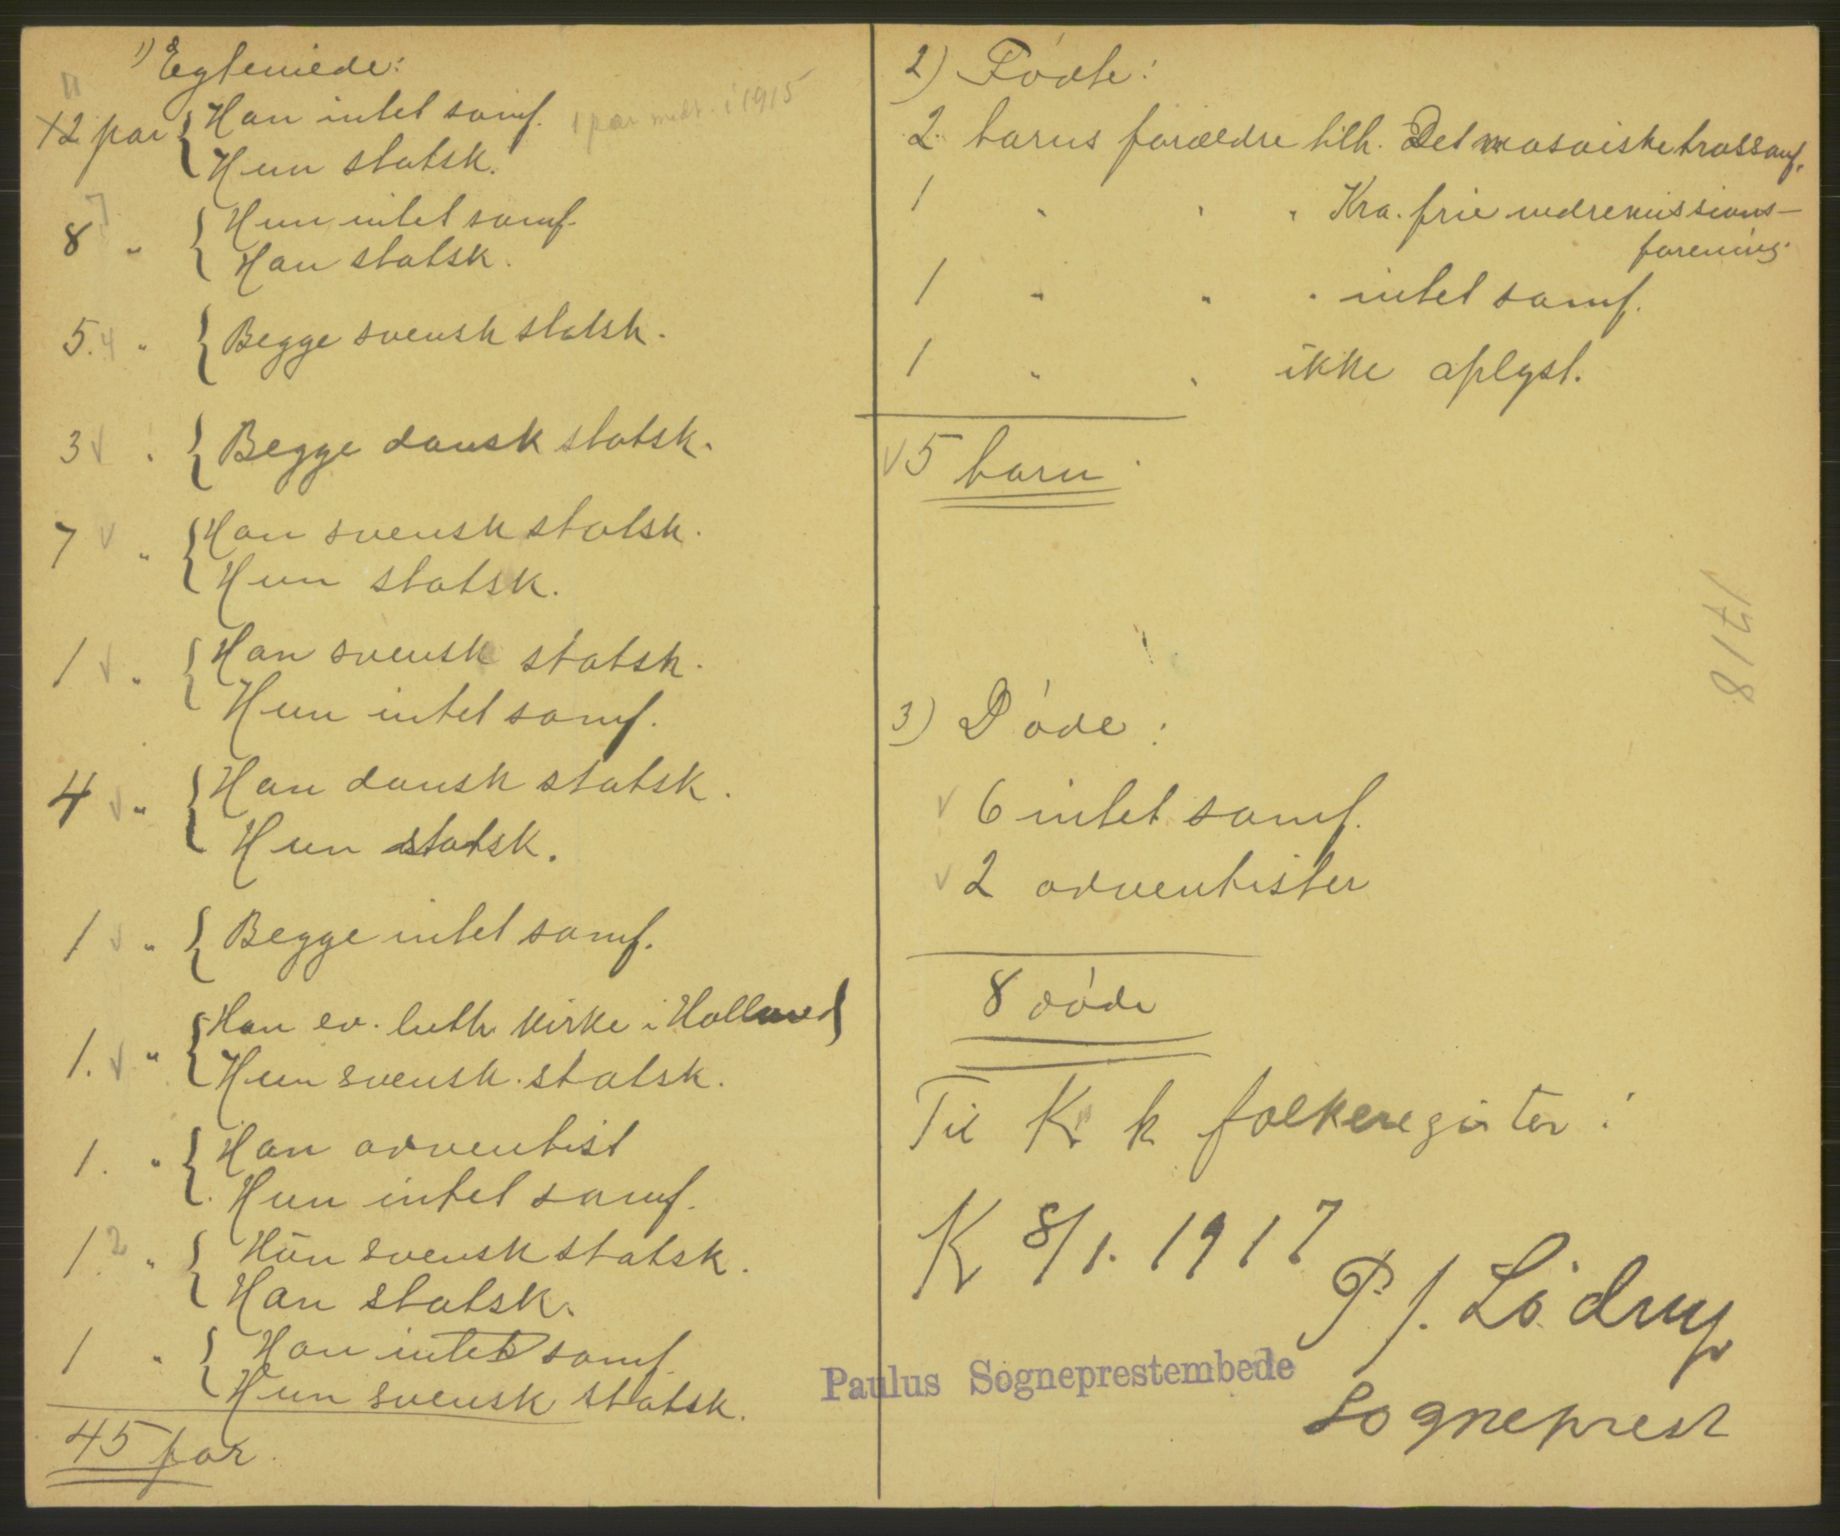 1) Egteviede:
11
12 par { Han intet samf. 1 par medt. i 1915
Hun statsk.
8 7 " { Hun intet samf.
Han statsk.
5. 4 " { Begge svensk statsk.
3 v " { Begge dansk statsk.
7 v " { Han svensk statsk.
Hun statsk.
1 v " { Han svensk statsk.
Hun intet samf.
4 v " { Han dansk statsk.
Hun statsk.
1 v " { Begge intet samf.
1. v " { Han ev. luth kirke i Holland }
Hun svensk statsk.
1. " { Han adventist
Hun intet samf.
1. 2 " { Hun svensk statsk.
Han statsk.
1 " { Han intet samf.
Hun svensk statsk.
45 par.
2) Fødte:
2 barns forældre tilh. Det mosaiske trossamf.
1 " " " Kra. frie indremissions-
forening.
1 " " " intet samf.
1 " " ikke oplyst.
v 5 barn
3) Døde:
v 6 intet samf.
v 2 adventister
8 døde
Til Kr k folkeregister:
K 8/1. 1917
P. J. Lødrup
Paulus Sogneprestembede
Sogneprest
1718